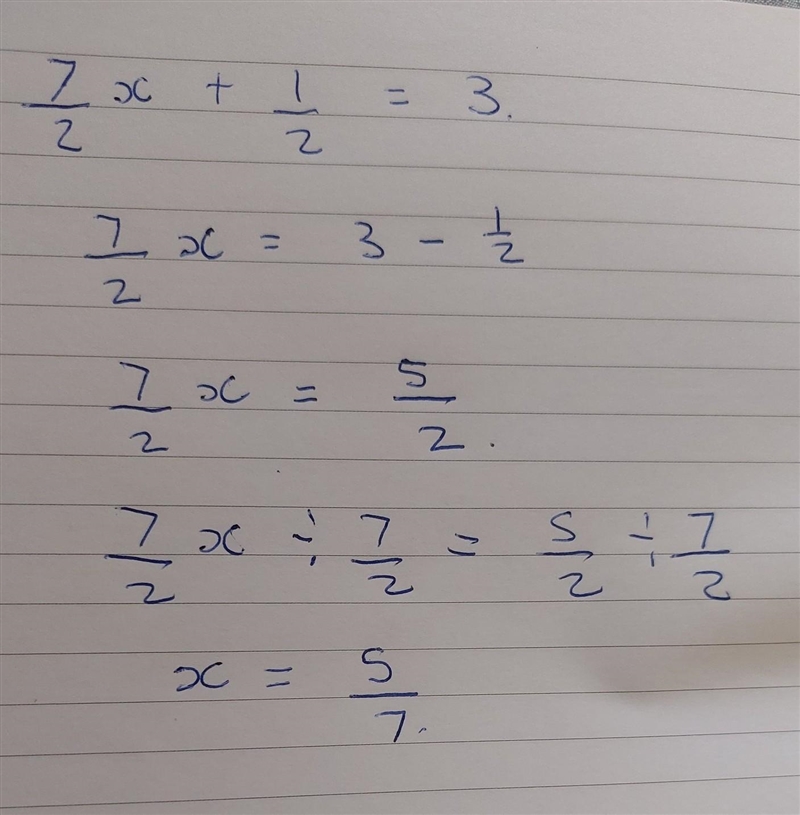 7/2 x + 1/2 = 3.
7/2 x = 3 - 1/2
7/2 x = 5/2.
7/2 x ÷ 7/2 = 5/2 ÷ 7/2
x = 5/7.